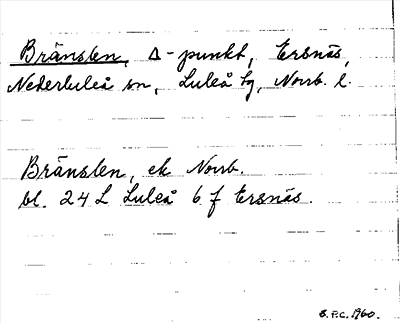 Bränslen, Δ-punkt, Ersnäs,
Nederluleå sn, Luleå tg, Norrb. l.
Bränslen, ek Norrb.
bl. 24 L Luleå 6 f Ersnäs.
S.P.C. 1960.